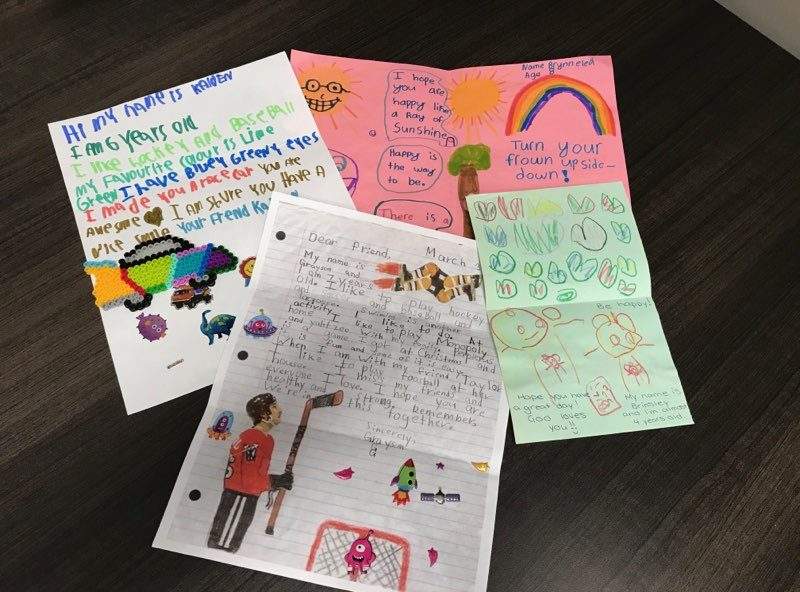 Hi my name is KAIDEN
I am 6 years old
I like Hockey and Baseball
my favourite colour is Lime
Green I have Bluey Greeny eyes
I made you a race car you are
Awesome I am shure you HAVE A
Nice smile your Friend
I hope
you are
happy like
a Ray of
Sunshine
Happy is
the way
to be.
There is a
Name Brynnelea
Age 8
Turn your
frown upside-
down!
Dear Friend, March
My name is
Grayson and
I am 7 years
old. I like to play hockey
and baseball and
activity. I like to do. At
home I like to play Monopoly
and yahtzee with my
is a game I got at Christmas and
is fun and some of it is easy.
When I am with my friend Taylor
I like to play football at her
house. I miss my friends and
everyone I love. I hope you are
healthy and strong. Remember,
We're in this together.
Sincerely,
Grayson
Be happy!
Hope you have
a great day!
God loves
you!!
My name is
Brinsley
and I'm almost
4 years old.